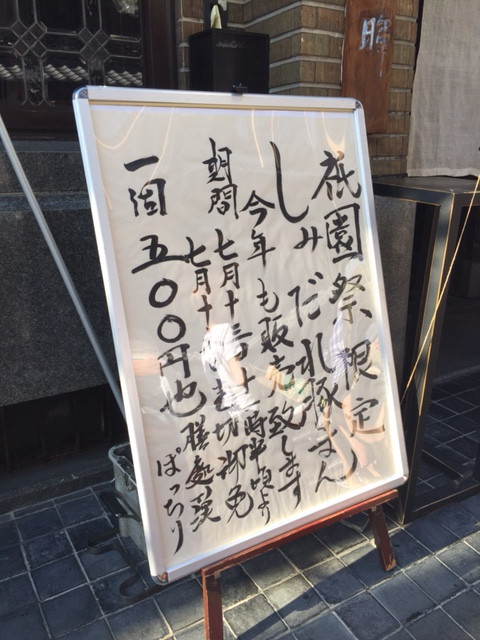 祇園祭限定
しみだれ豚まん
今年も販売致します
期間 七月十
七月十 売切御免
一個 五〇〇円也
膳處漢ぽっちり
膳